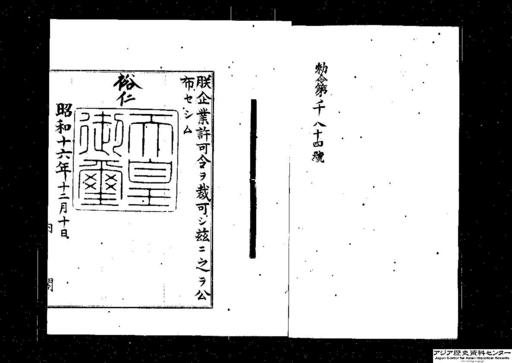 勅令第千八十四號
朕企業許可令ヲ裁可シ茲ニ之ヲ公
布セシム
裕仁
天皇
御璽
昭和十六年十二月十日
内閣
アジア歴史資料センター
Japan Center for Asian Historical Records